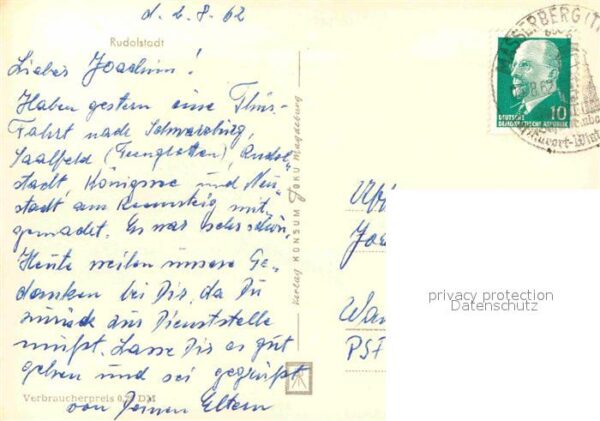 d. 2.8.62
Rudolstadt
Lieber Joachim!
Haben gestern eine Thür.-
Fahrt nach Schwarzburg,
Saalfeld (Feengrotten), Rudol-
stadt, Königsee und Neu-
stadt am Rennsteig mit-
gemacht. Es war sehr schön.
Heute weilen unsere Ge-
danken bei Dir, da Du
zurück zur Dienststelle
mußt. Lasse Dir es gut
gehen und sei gegrüßt
von Deinen Eltern
Verbraucherpreis 0, DM
Verlag KONSUM FOKU Magdeburg
MASSERBERG (TH
8.62
10
DEUTSCHE
DEMOKRATISCHE REPUBLIK
Kurort-Wint
Ufz
Joa
Wa
PSF
privacy protection
Datenschutz